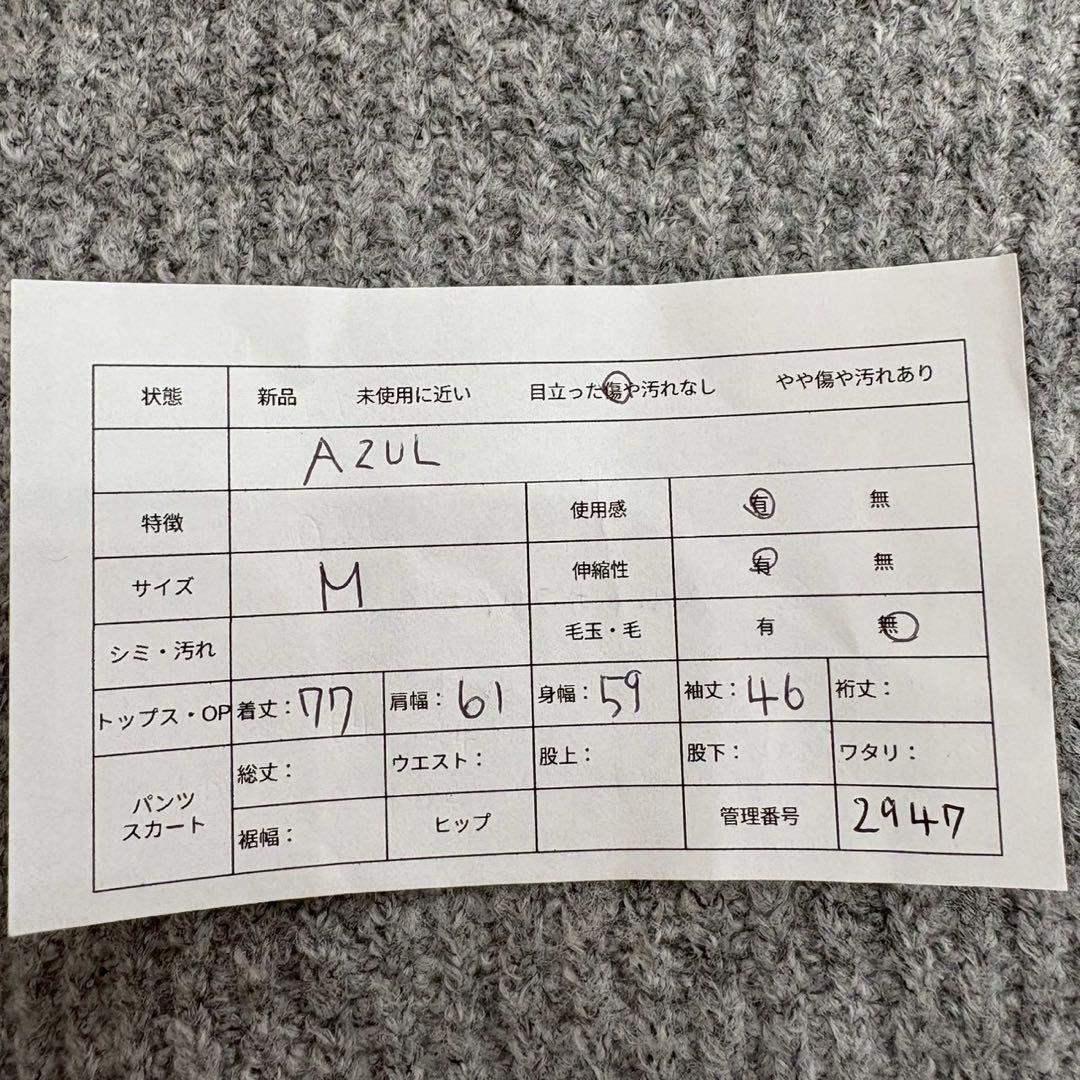 状態 新品 未使用に近い 目立った傷や汚れなし やや傷や汚れあり
AZUL
特徴 使用感 有 無
サイズ M 伸縮性 有 無
シミ・汚れ 毛玉・毛 有 無
トップス・OP 着丈：77 肩幅：61 身幅：59 袖丈：46 裄丈：
パンツ
スカート
総丈： ウエスト： 股上： 股下： ワタリ：
裾幅： ヒップ 管理番号 2947